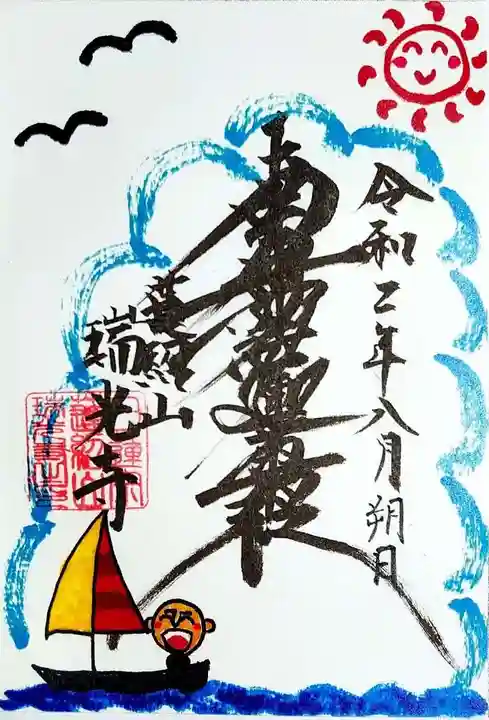 令和二年八月朔日
南無妙法蓮華経
山
瑞光寺